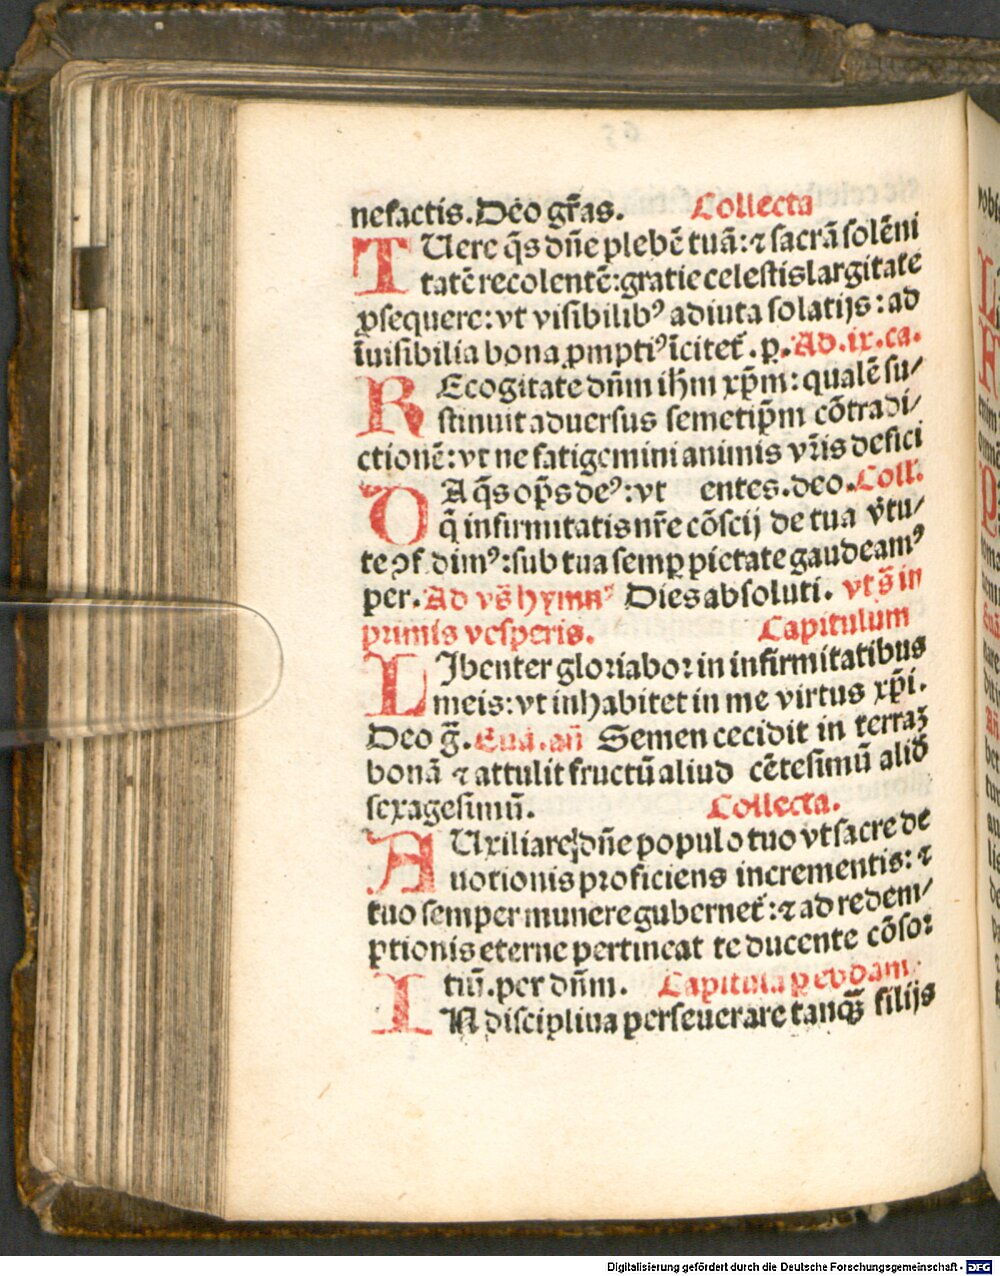 nefactis. Deo gr̄as. Collecta
TUere q̄s dn̄e plebē tuā: ⁊ sacrā solēni
tatē recolentē: gratie celestis largitate
ꝓsequere: vt visibilibꝰ adiuta solatijs: ad
īuisibilia bona ꝓmptiꝰ īcitet̄. p. Ad .ix. ca.
REcogitate dn̄m ih̄m xp̄m: qualē su⸗
stinuit aduersus semetip̄m cōtradi⸗
ctionē: vt ne fatigemini animis vr̄is defici
DA q̄s op̄s deꝰ: vt entes. deo. Coll.
q̄ infirmitatis nr̄e cōscij de tua v̄tu⸗
te ꝯf dimꝰ: sub tua semꝑ pietate gaudeamꝰ
per. Ad vs̄ hymnꝰ Dies absoluti. vt s̄ in
primis vesperis. Capitulum
LIbenter gloriabor in infirmitatibus
meis: vt inhabitet in me virtus xp̄i.
Deo g̅. Euā. an̄ Semen cecidit in terraꝫ
bonā ⁊ attulit fructū aliud cētesimū aliđ
sexagesimū. Collecta.
AUxiliare dn̄e populo tuo vt sacre de
uotionis proficiens incrementis: ⁊
tuo semper munere gubernet̄: ⁊ ad redem⸗
ptionis eterne pertineat te ducente cōsor
tiū. per dn̄m. Capitula ꝑ eosdam
IN disciplina perseuerare tanqꝫ filijs
Digitalisierung gefördert durch die Deutsche Forschungsgemeinschaft - DFG